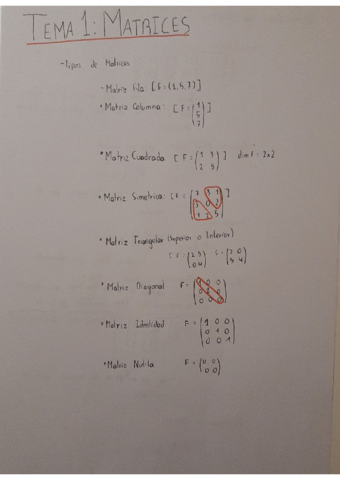 TEMA 1: MATRICES
- Tipos de Matrices
- Matriz Fila [F = (1, 5, 7)]
• Matriz Columna: [F = (1
5
7)]
• Matriz Cuadrada [F = (1 3
2 5)] dim F = 2x2
• Matriz Simetrica: [F =
• Matriz Triangular (Superior o Inferior)
F = (2 3
0 4)
• Matriz Diagonal F =
• Matriz Identidad F = (1 0 0
0 1 0
0 0 1)
• Matriz Nula F = (0 0
0 0)